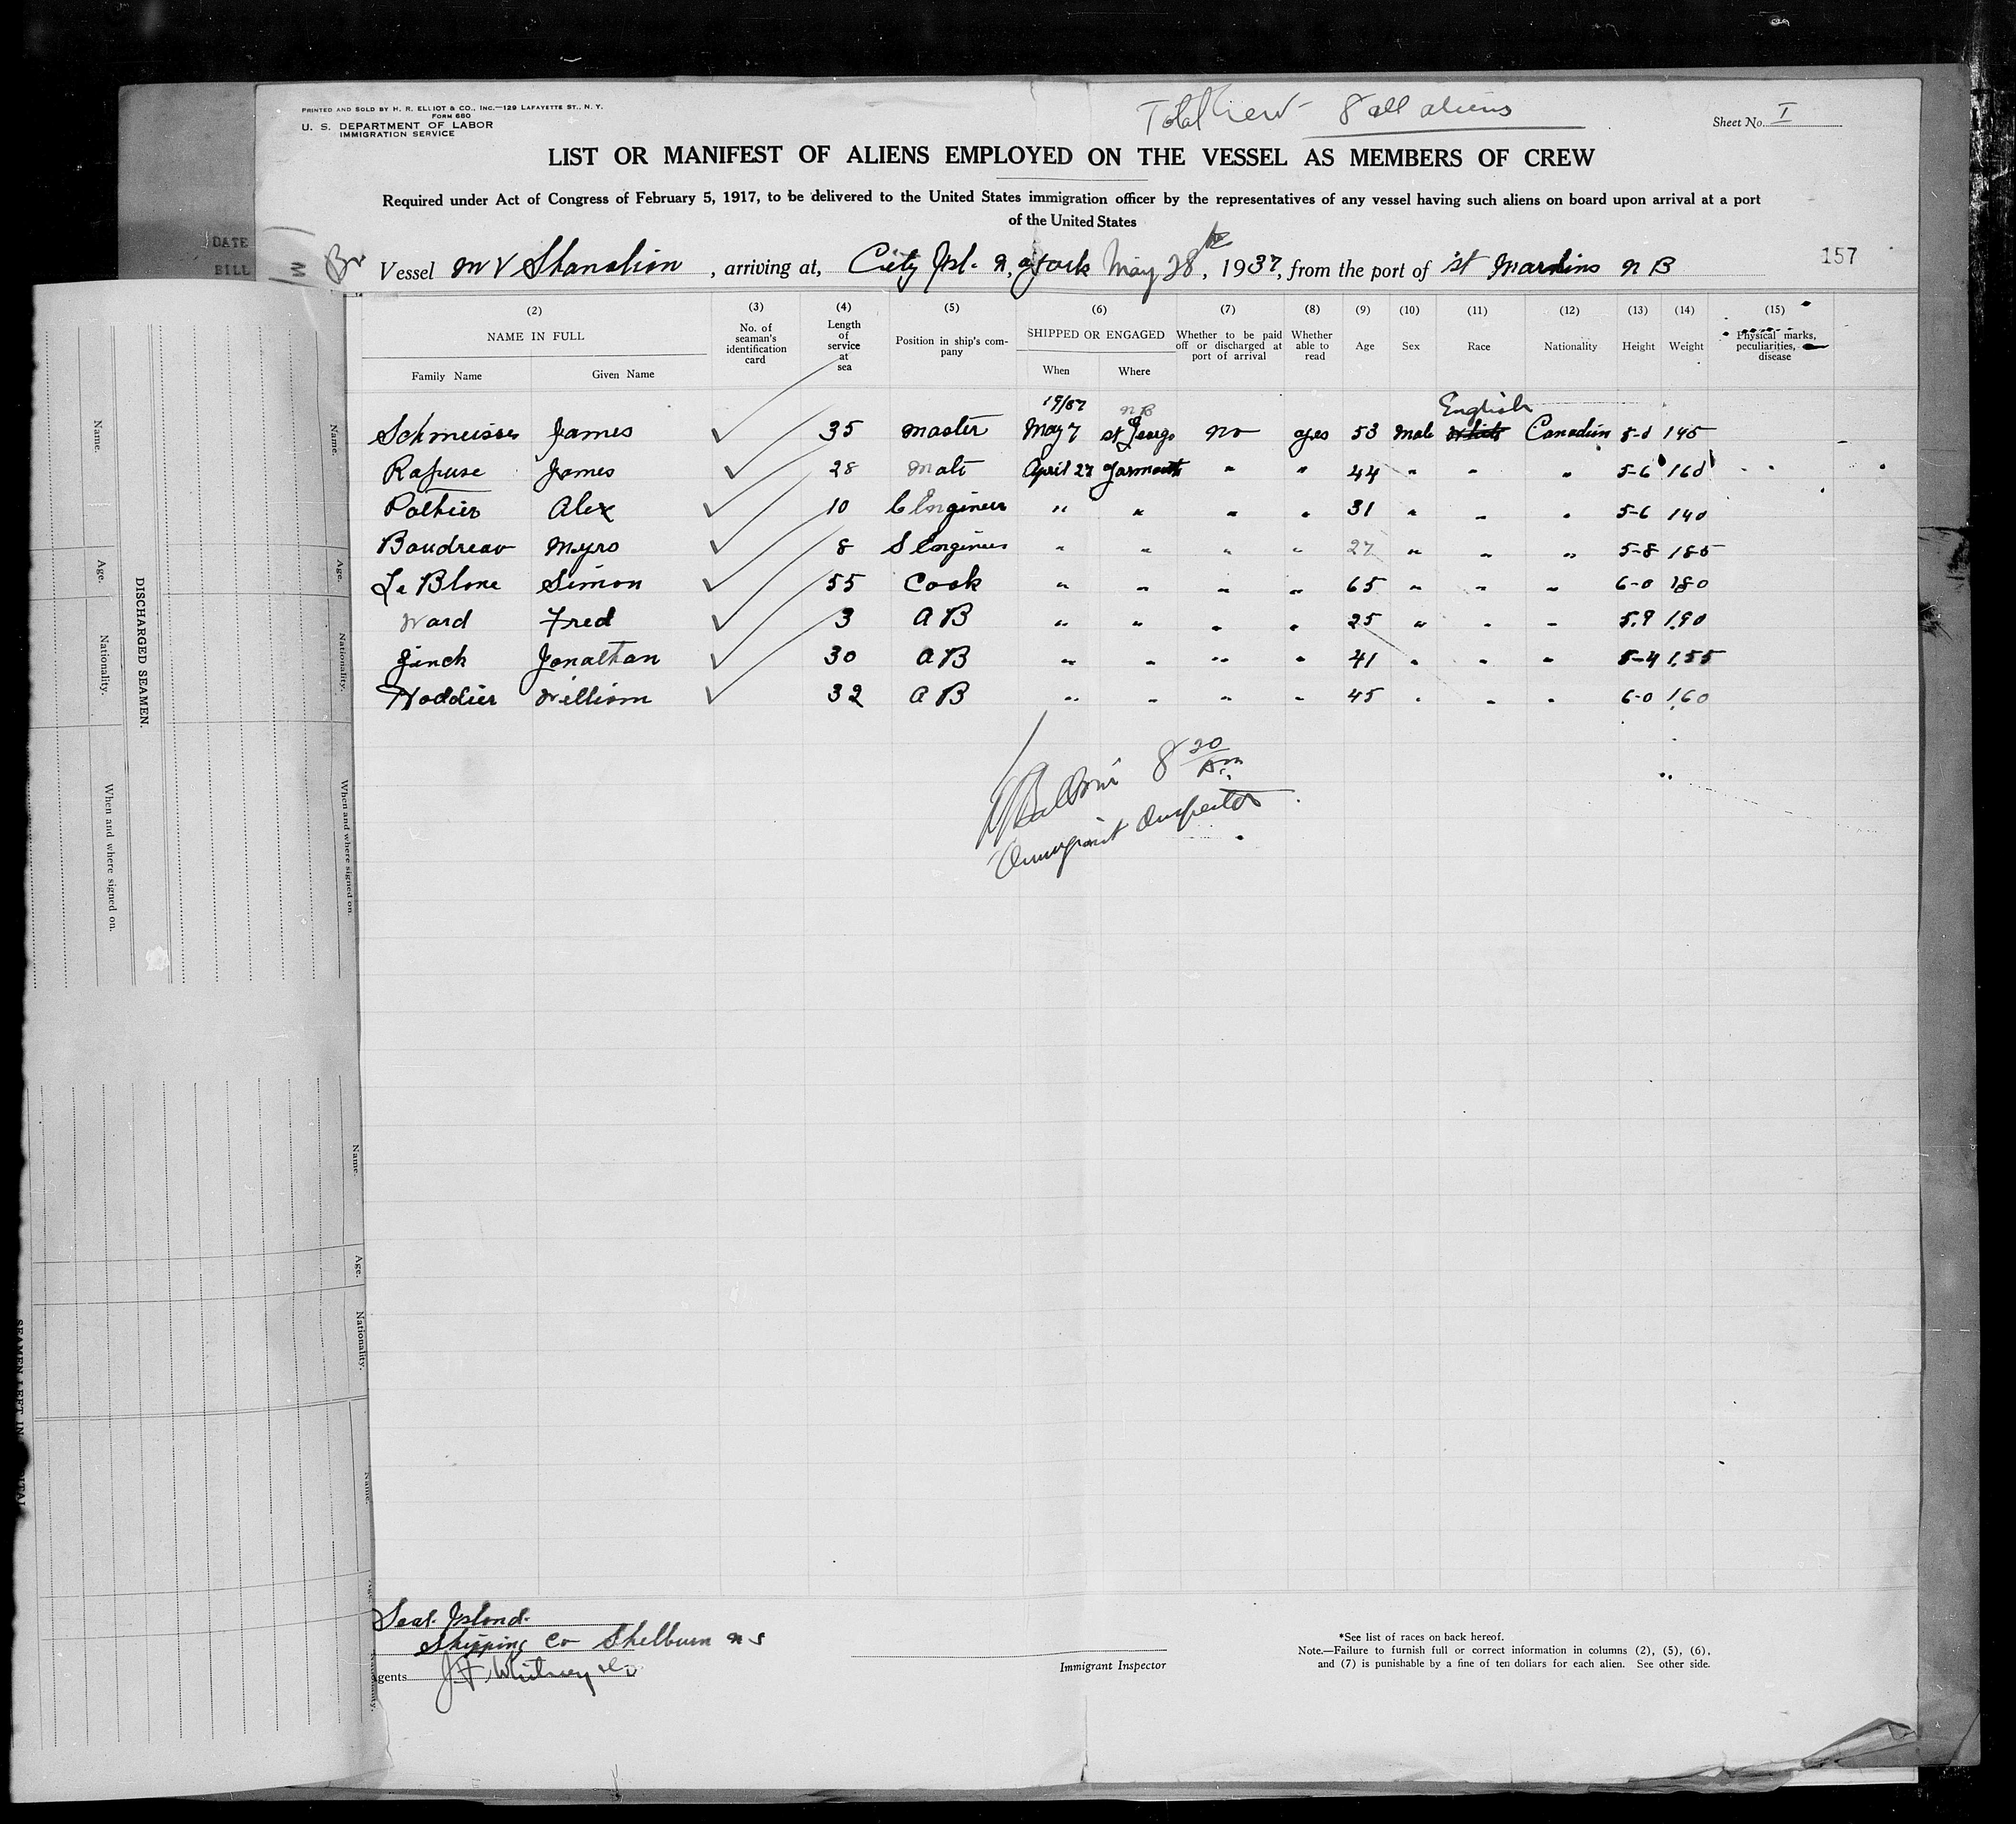 PRINTED AND SOLD BY H. R. ELLIOT & CO., INC.—129 LAFAYETTE ST., N. Y.
FORM 680
U. S. DEPARTMENT OF LABOR
IMMIGRATION SERVICE
Total Crew 8 all aliens
Sheet No. I
LIST OR MANIFEST OF ALIENS EMPLOYED ON THE VESSEL AS MEMBERS OF CREW
Required under Act of Congress of February 5, 1917, to be delivered to the United States immigration officer by the representatives of any vessel having such aliens on board upon arrival at a port
of the United States
DATE
BILL
Br Vessel M V Shanalian, arriving at, City Isl. N. York May 28th, 1937, from the port of St Martins N B
157
(2) (3) (4) (5) (6) (7) (8) (9) (10) (11) (12) (13) (14) (15)
NAME IN FULL No. of seaman's identification card Length of service at sea Position in ship's company SHIPPED OR ENGAGED Whether to be paid off or discharged at port of arrival Whether able to read Age Sex Race Nationality Height Weight Physical marks, peculiarities, disease
Family Name Given Name When Where
19/37 N B English
Schmeisser James 35 Master May 7 St George no yes 53 Male Canadian 5-8 145
Rafuse James 28 Mate April 27 Yarmouth " " 44 " " " 5-6 160
Pothier Alex 10 C Engineer " " " " 31 " " " 5-6 140
Boudreau Myro 8 S Engineer " " " " 27 " " " 5-8 185
Le Blanc Simon 55 Cook " " " " 65 " " " 6-0 180
Ward Fred 3 A B " " " " 25 " " " 5.9 190
Finck Jonathan 30 A B " " " " 41 " " " 5-4 155
Hoddier William 32 A B " " " " 45 " " " 6-0 160
8 20 Am
Immigrant Inspector
Seal Island
Shipping Co Shelburn N S
Agents J. F. Whitney & Co
Immigrant Inspector
*See list of races on back hereof.
Note.—Failure to furnish full or correct information in columns (2), (5), (6),
and (7) is punishable by a fine of ten dollars for each alien. See other side.
DISCHARGED SEAMEN.
Name. Age. Nationality. When and where signed on.
Name. Age. Nationality. When and where signed on.
Name. Age. Nationality.
Name.